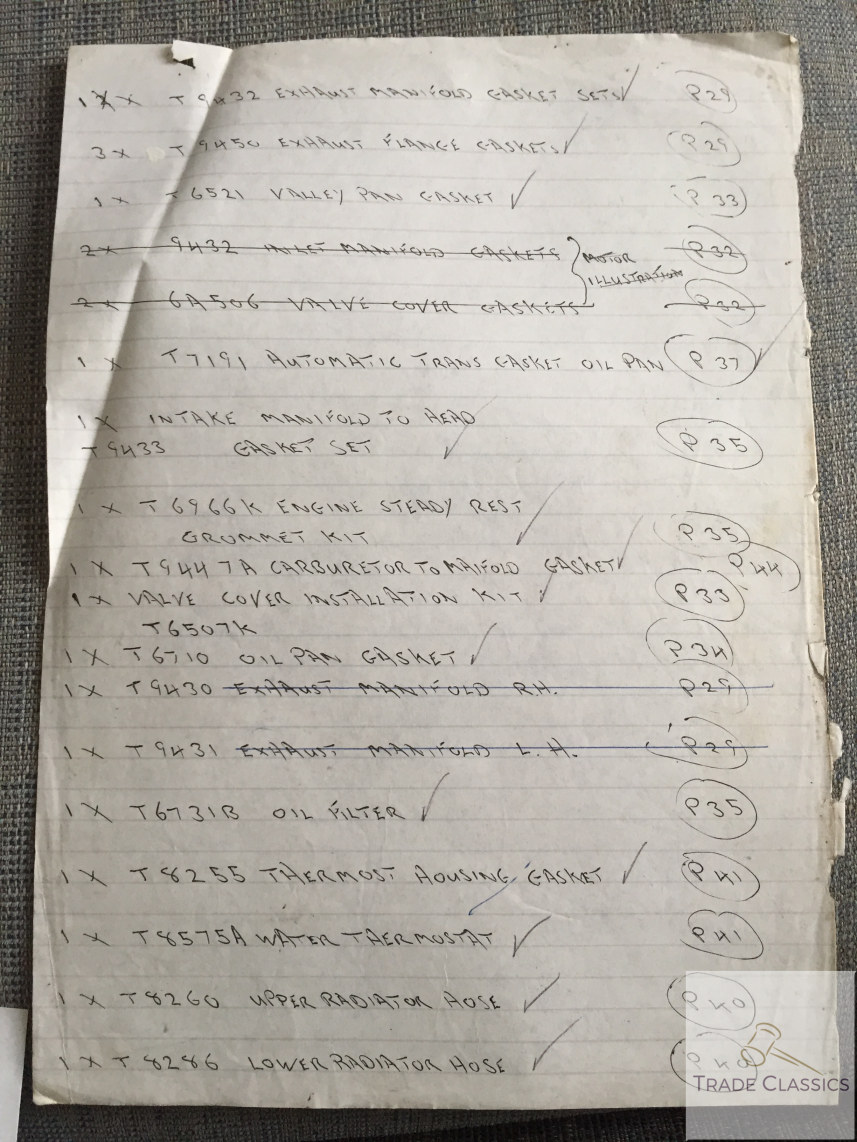 1 X X T 9432 EXHAUST MANIFOLD GASKET SETS ✓ P29
3 X T 9450 EXHAUST FLANGE GASKETS ✓ P29
1 X T 6521 VALLEY PAN GASKET ✓ P 33
2X 9432 INLET MANIFOLD GASKETS P32
MOTOR
ILLUSTRATION
2X 6A506 VALVE COVER GASKETS P32
1 X T7191 AUTOMATIC TRANS GASKET OIL PAN P 37 ✓
1 X INTAKE MANIFOLD TO HEAD
T 9433 GASKET SET ✓ P 35
1 X T 6966K ENGINE STEADY REST
GROMMET KIT ✓ P 35
1 X T9447A CARBURETOR TO MAIFOLD GASKET ✓ P 44
1 X VALVE COVER INSTALLATION KIT ✓ P33
T6507K
1 X T6710 OIL PAN GASKET ✓ P34
1 X T9430 EXHAUST MANIFOLD R.H. P29
1 X T 9431 EXHAUST MANIFOLD L.H. P29
1 X T6731B OIL FILTER ✓ P35
1 X T 8255 THERMOST HOUSING GASKET ✓ P41
1 X T8575A WATER THERMOSTAT ✓ P41
1 X T8260 UPPER RADIATOR HOSE ✓ P40
1 X T 8286 LOWER RADIATOR HOSE ✓ P40
TRADE CLASSICS